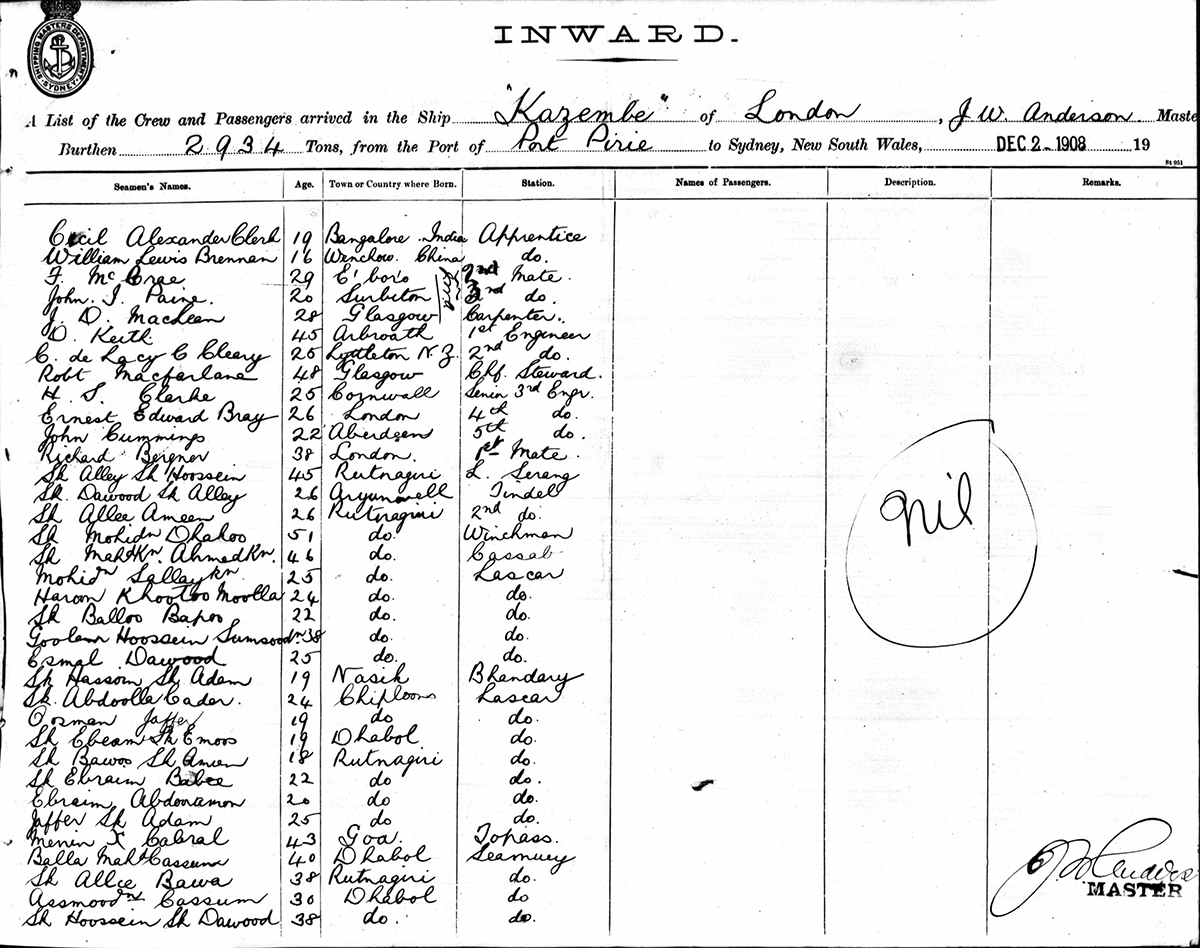 SHIPPING MASTERS DEPARTMENT SYDNEY
INWARD.
A List of the Crew and Passengers arrived in the Ship "Kazembe" of London, J W. Anderson. Maste
Burthen 2934 Tons, from the Port of Port Pirie to Sydney, New South Wales, DEC 2 - 1908 19
St 951
Seamen's Names. Age. Town or Country where Born. Station. Names of Passengers. Description. Remarks.
Cecil Alexander Clerk 19 Bangalore India Apprentice
William Lewis Brennan 16 Wenchow. China do.
F. McCrae 29 E'boro 2nd Mate.
John. J. Paine. 20 Surbiton 3rd do.
J. D. MacLean 28 Glasgow Carpenter.
D. Keith 45 Arbroath 1st Engineer
C. de Lacy C Cleary 25 Lyttleton N.Z. 2nd do.
Robt Macfarlane 48 Glasgow Chf. Steward.
H. S. Clerke 25 Cornwall Senin 3rd Engr.
Ernest Edward Bray 26 London 4th do.
John Cummings 22 Aberdeen 5th do.
Richard Bergner 38 London. 1st Mate.
Sk Alley Sk Hoossein 45 Rutnagiri L. Serang
Sk. Dawood Sk Alley 26 Tindel
Sk Allee Ameen 26 Rutnagiri 2nd do.
Sk Mohidn Dhakoo 51 do. Winchman
Sk Mahd Kn. Ahmed Kn. 46 do. Cassab
Mohidn Sallay Kn 25 do. Lascar
Haroon Khootoo Moolla 24 do. do.
Sk Balloo Bapoo 22 do. do.
Goolam Hoossein Sumsoodn 38 do. do.
Esmal Dawood 25 do. do.
Sk Hassom Sk Adam 19 Nasik Bhandary
Sk. Abdoolla Cader. 24 Chiploon Lascar
Oosman Jaffer 19 do do.
Sk Ebeam Sk Emoos 19 Dhabol do.
Sk Bawoo Sk Amien 18 Rutnagiri do.
Sk Ebraim Babee 22 do do.
Ebraim Abdouramon 20 do do.
Jaffer Sk Adam 25 do do.
Menin X Cabral 43 Goa. Topass.
Balla Mahd Cassum 40 Dhabol Seamuey
Sk Allee Bawa 38 Rutnagiri do.
Assmoodn Cassum 30 Dhabol do
Sk Hoossein Sk Dawood 38 do. do.
Nil
MASTER